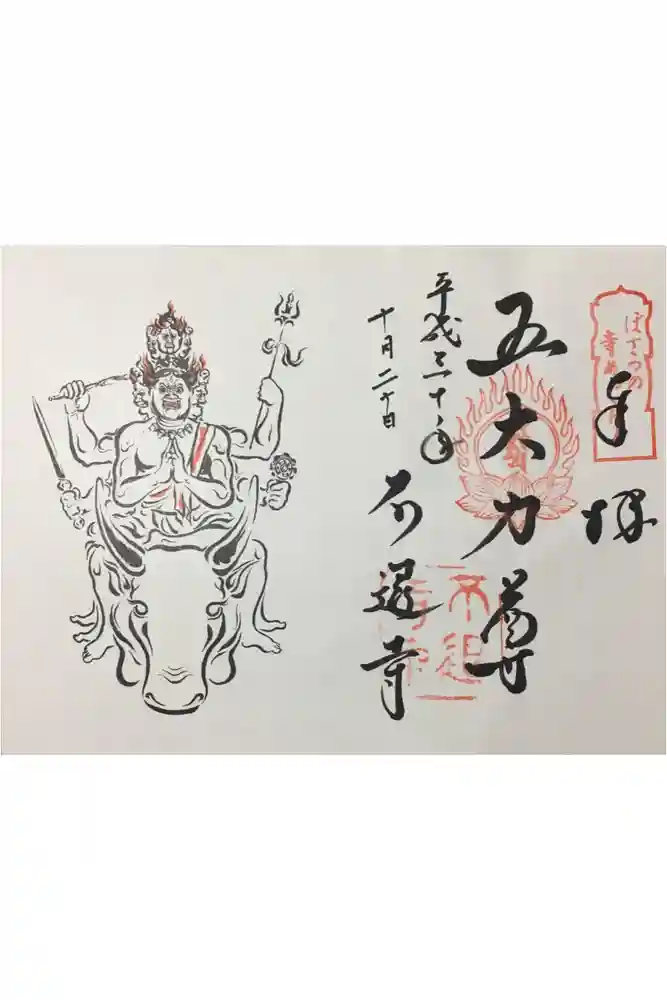 ぼさつの
寺め
奉拝
五大力尊
平成三十年
十月二十日
不退寺
不退
寺印